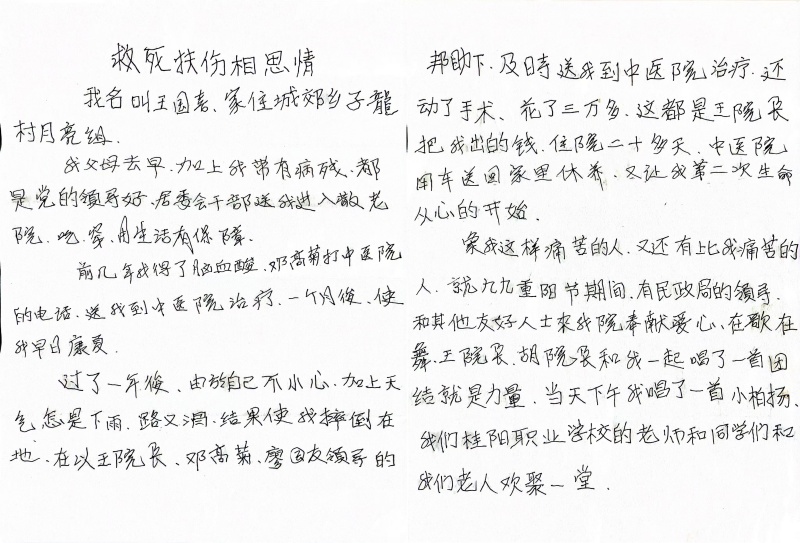 救死扶伤相思情
我名叫王国喜、家住城郊乡子龍
村月亮组.
我父母去早.加上我带有病残、都
是党的领导好、居委会干部送我进入敬老
院.吃.穿.用生活有保障.
前几年我得了脑血酸.邓高菊打中医院
的电话.送我到中医院治疗.一个月後、使
我早日康复.
过了一年後、由於自己不小心.加上天
气怎是下雨.路又洇.结果使我摔倒在
地.在以王院长、邓高菊、廖国友领导的
邦助下.及时送我到中医院治疗.还
动了手术、花了三万多.这都是王院长
把我出的钱.住院二十多天.中医院
用车送回家里休养.又让我第二次生命
从心的开始.
象我这样痛苦的人.又还有比我痛苦的
人.就九九重阳节期间.有民政局的领导.
和其他友好人士来我院奉献爱心、在歌在
舞.王院长.胡院长和我一起唱了一首团
结就是力量.当天下午我唱了一首小柏扬、
我们桂阳职业学校的老师和同学们和
我们老人欢聚一堂.